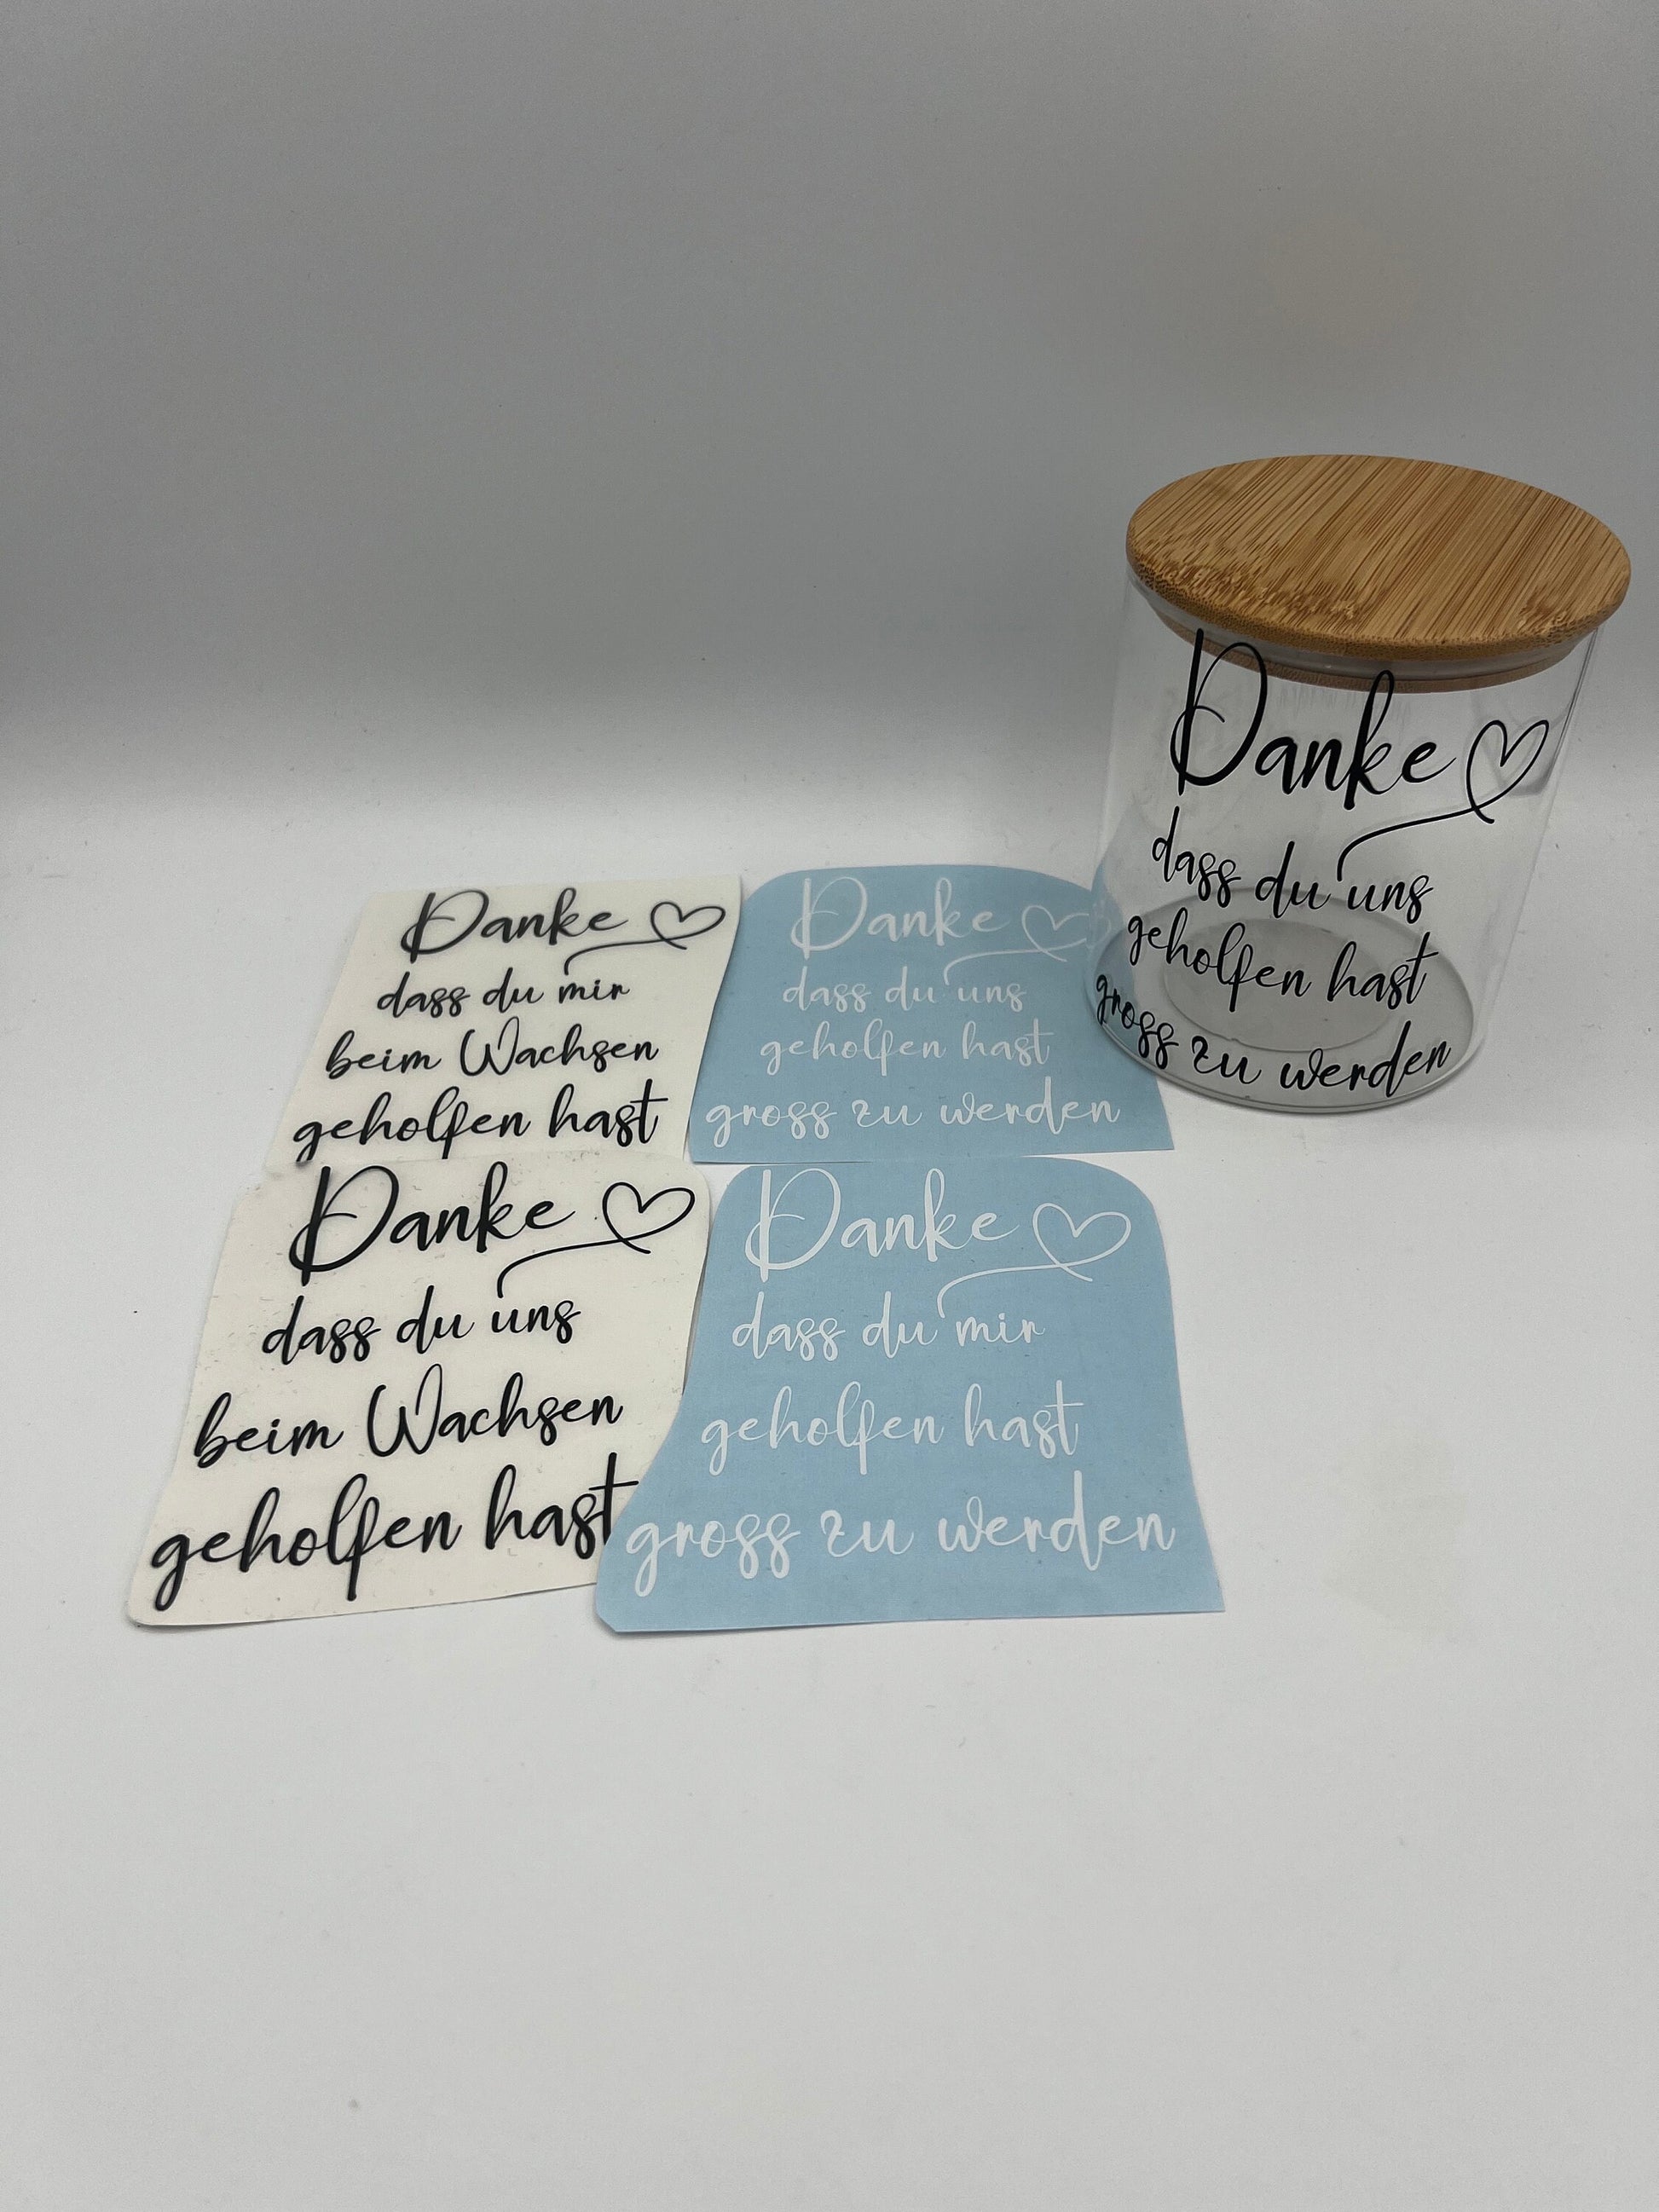 Danke
dass du mir
beim Wachsen
geholfen hast
Danke
dass du uns
geholfen hast
gross zu werden
Danke
dass du uns
geholfen hast
gross zu werden
Danke
dass du uns
beim Wachsen
geholfen hast
Danke
dass du mir
geholfen hast
gross zu werden